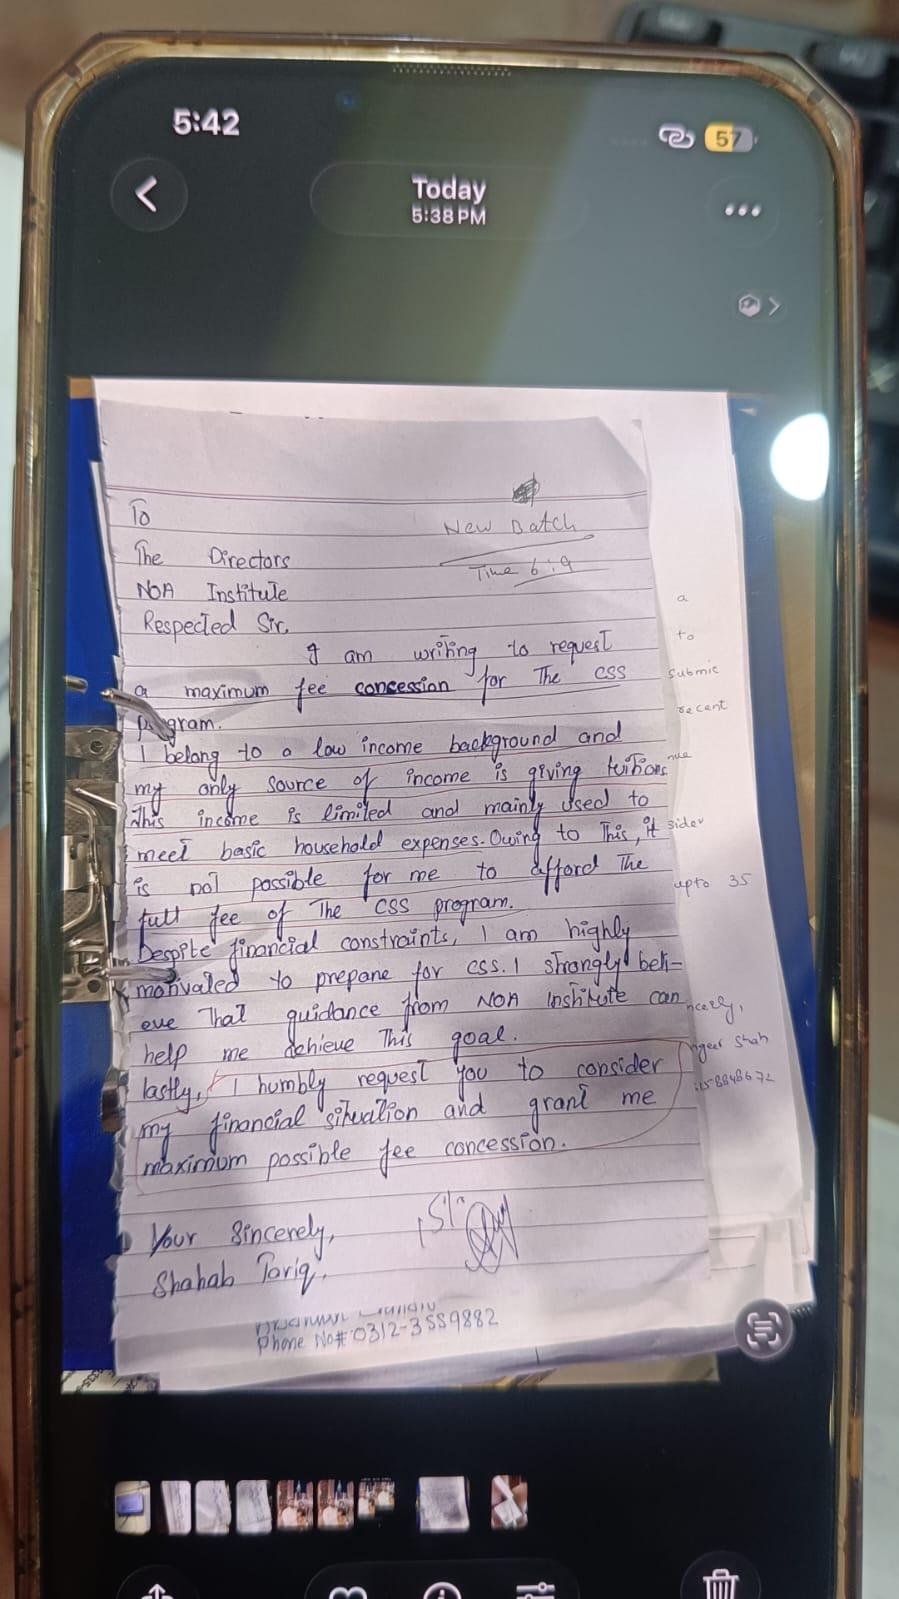 5:42
57
Today
5:38 PM
To
New Batch
The Directors
Time 6:9
NOA Institute
Respected Sir,
I am writing to request
a maximum fee concession for The CSS
program.
I belong to a low income background and
my only source of income is giving tuitions
This income is limited and mainly used to
meet basic household expenses. Owing to This, it
is not possible for me to afford The
full fee of The CSS program.
Despite financial constraints, I am highly
motivated to prepare for CSS. I strongly beli-
eve That guidance from NOA Institute can
help me achieve This goal.
lastly, I humbly request you to consider
my financial situation and grant me
maximum possible fee concession.
Your Sincerely,
Shahab Tariq.
Phone No# 0312-3559882
a
to
submit
recent
nue
sider
upto 35
ncerely,
ngeer Shah